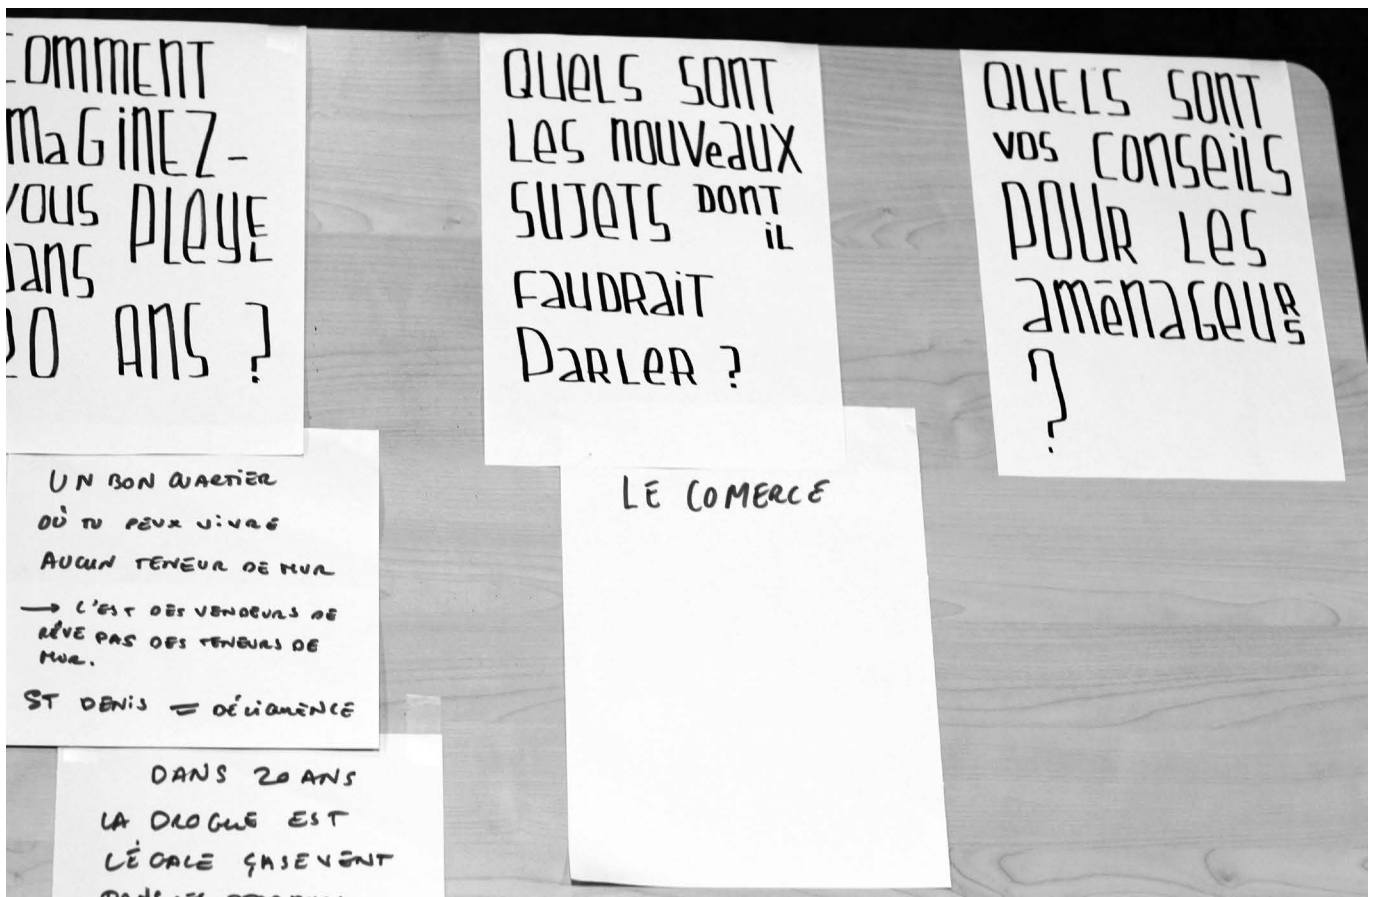 COMMENT
IMAGINEZ-
VOUS PLEYEL
DANS
20 ANS ?
UN BON QUARTIER
OÙ TU PEUX VIVRE
AUCUN TENEUR DE MUR
→ C'EST DES VENDEURS DE
RÊVE PAS DES TENEURS DE
MUR.
ST DENIS = DÉLIQUENCE
DANS 20 ANS
LA DROGUE EST
LÉGALE ÇA SE VENT
DANS LES
QUELS SONT
LES NOUVEAUX
SUJETS DONT
IL
FAUDRAIT
PARLER ?
LE COMERCE
QUELS SONT
VOS CONSEILS
POUR LES
AMÉNAGEURS
?